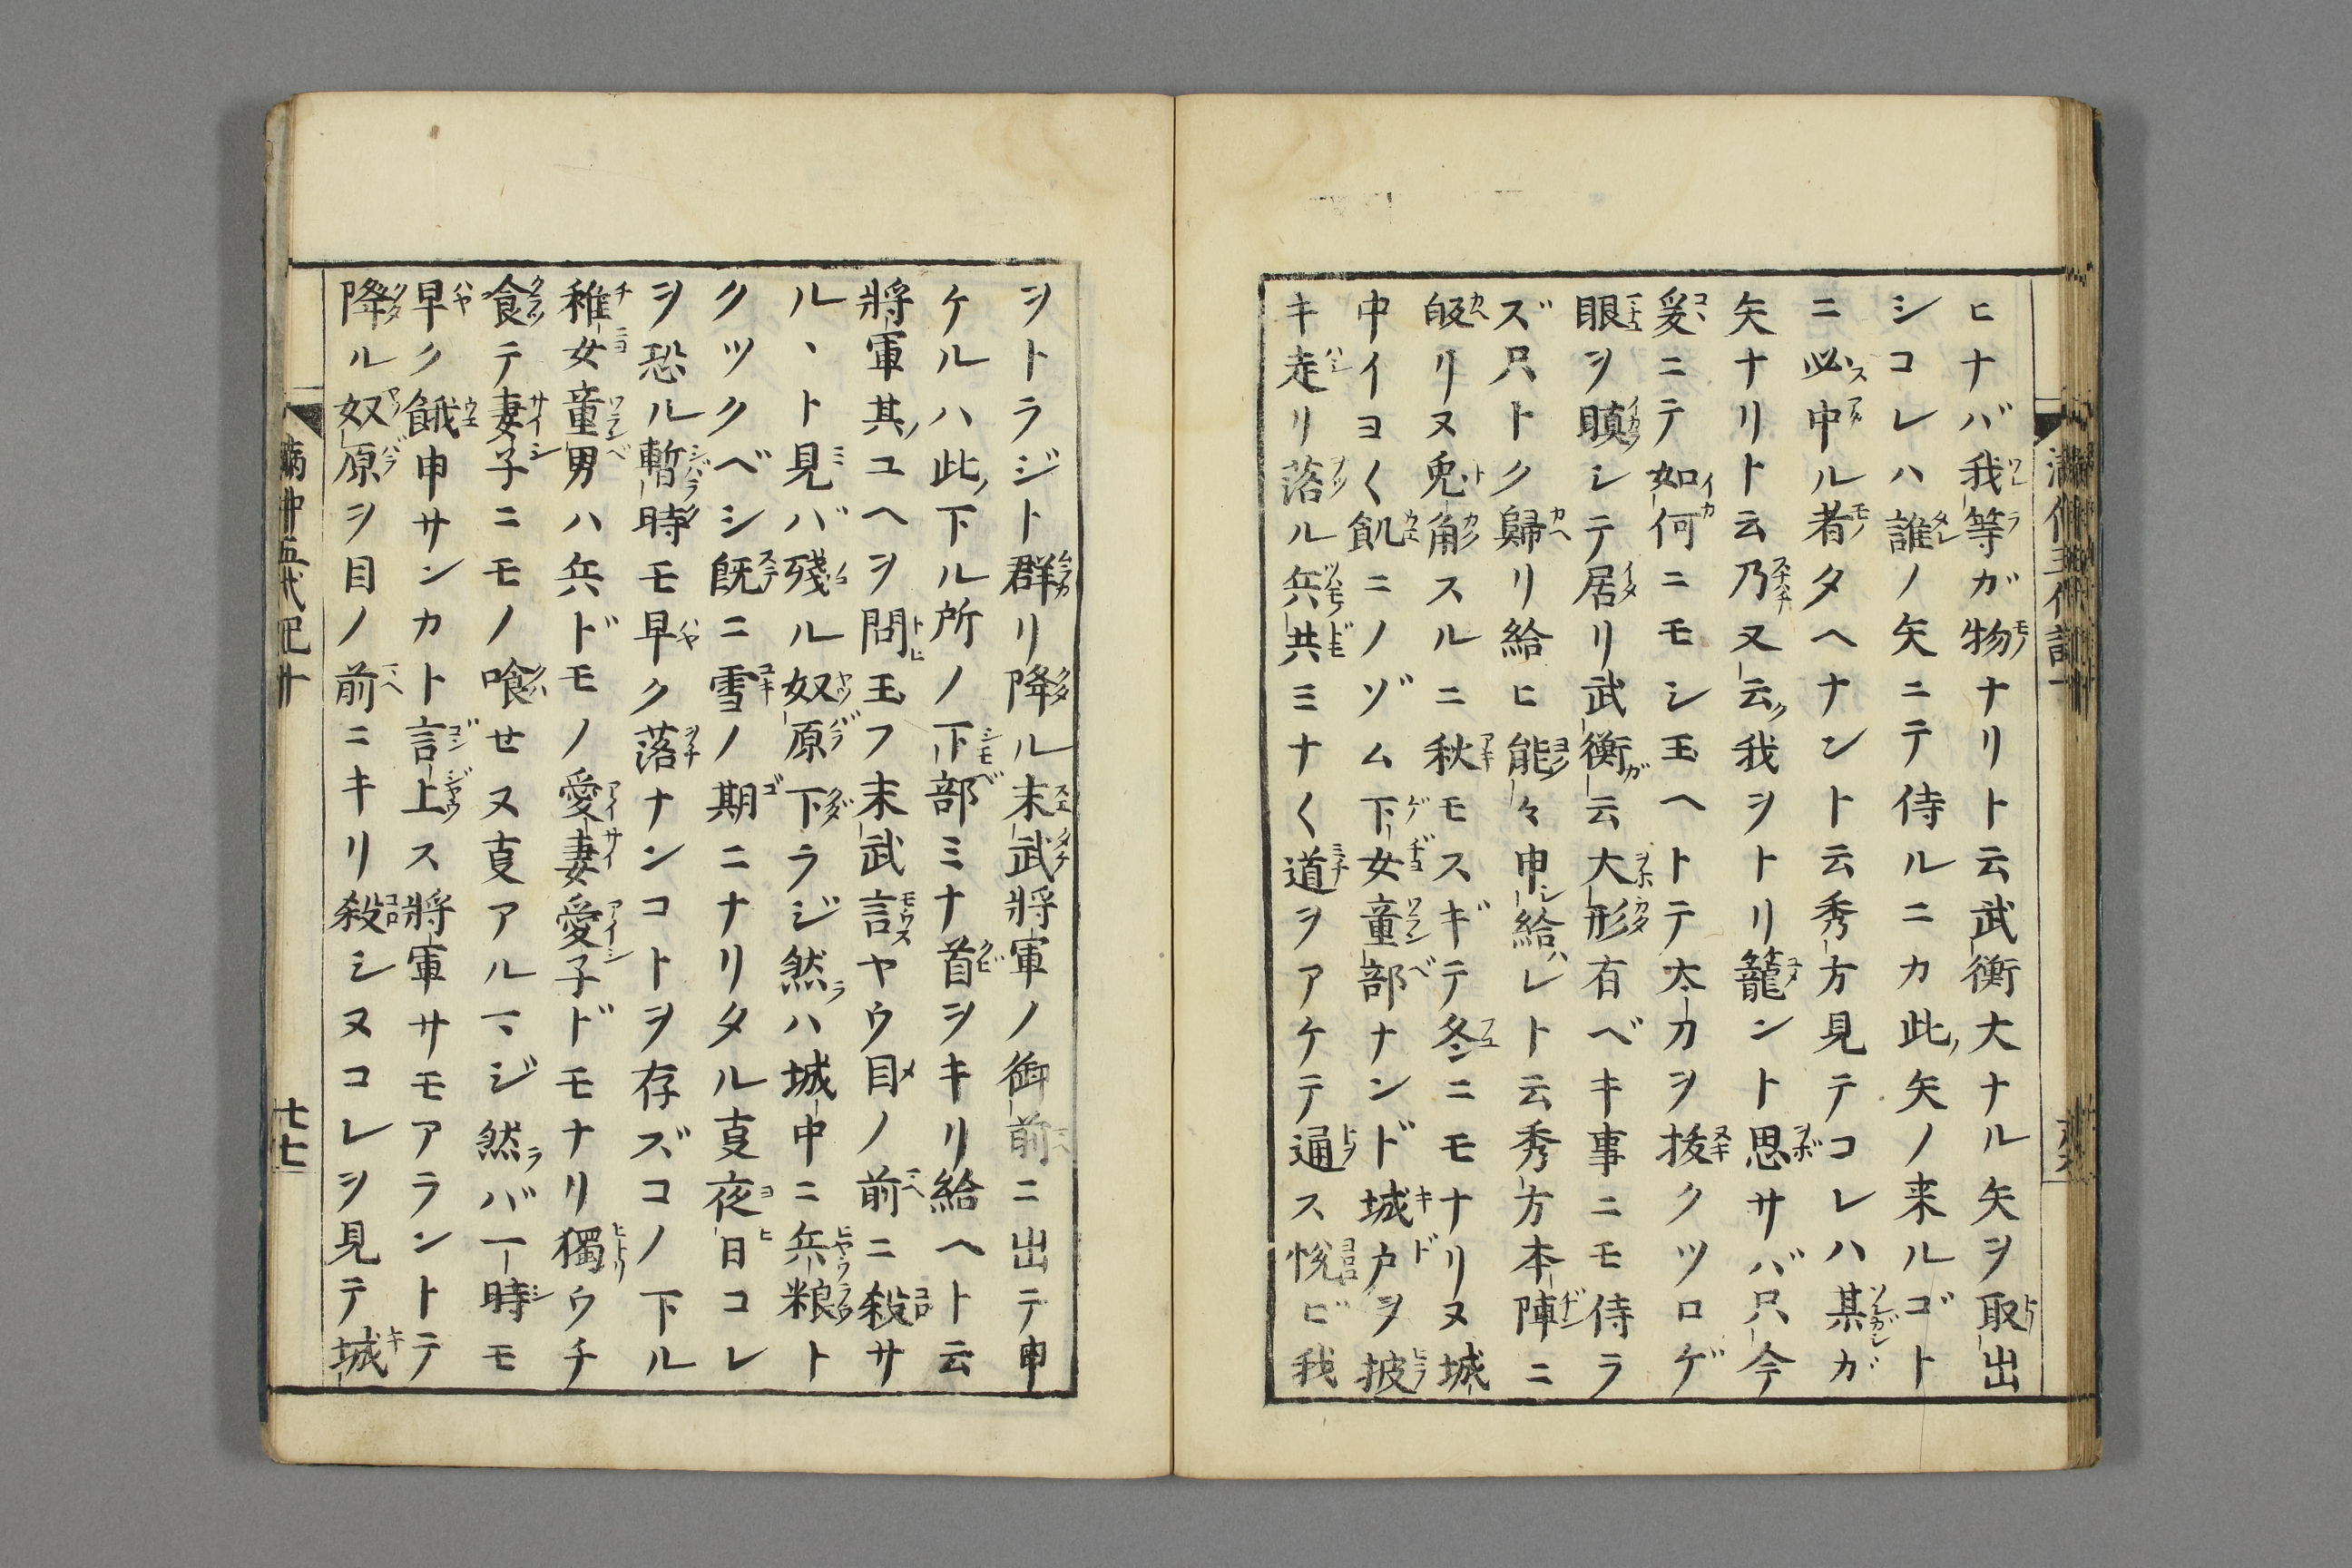 ヒナバ我等ガ物ナリト云武衡大ナル矢ヲ取出
シコレハ誰ノ矢ニテ侍ルニカ此矢ノ来ルゴト
ニ必中ル者タヘナント云秀方見テコレハ某ガ
矢ナリト云乃又云我ヲトリ籠ント思サバ只今
爰ニテ如何ニモシ玉ヘトテ太刀ヲ抜クツロゲ
眼ヲ瞋シテ居リ武衡云大形有ベキ事ニモ侍ラ
ズ只トク歸リ給ヒ能々申給レト云秀方本陣ニ
皈リヌ兎角スルニ秋モスギテ冬ニモナリヌ城
中イヨ〱飢ニノゾム下女童部ナンド城戸ヲ披
キ走リ落ル兵共ミナ〱道ヲアケテ通ス悦ビ我
ヲトラジト群リ降ル末武將軍ノ御前ニ出テ申
ケルハ此下ル所ノ下部ミナ首ヲキリ給ヘト云
將軍其ユヘヲ問玉フ末武言ヤウ目ノ前ニ殺サ
ルヽト見バ殘ル奴原下ラジ然ハ城中ニ兵粮ト
クツクベシ既ニ雪ノ期ニナリタル叓夜日コレ
ヲ恐ル暫時モ早ク落ナンコトヲ存ズコノ下ル
稚女童男ハ兵ドモノ愛妻愛子ドモナリ獨ウチ
食テ妻子ニモノ喰セヌ叓アルマジ然バ一時モ
早ク餓申サンカト言上ス將軍サモアラントテ
降ル奴原ヲ目ノ前ニキリ殺シヌコレヲ見テ城